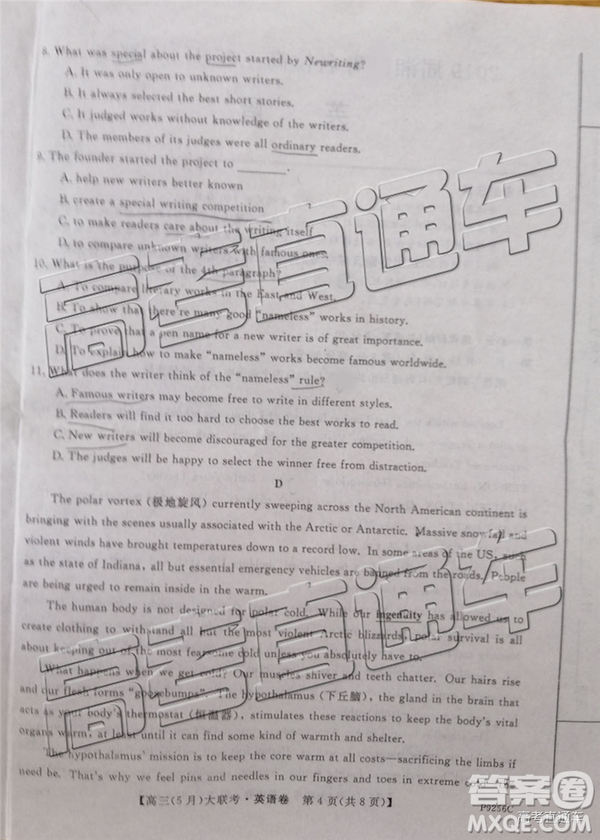 8. What was special about the project started by Newriting?
A. It was only open to unknown writers.
B. It always selected the best short stories.
C. It judged works without knowledge of the writers.
D. The members of its judges were all ordinary readers.
9. The founder started the project to ______.
A. help new writers better known
B. create a special writing competition
C. to make readers care about the writing itself
D. to compare unknown writers with famous ones
10. What is the purpose of the 4th paragraph?
A. To compare literary works in the East and West.
B. To show that there're many good "nameless" works in history.
C. To prove that a pen name for a new writer is of great importance.
D. To explain how to make "nameless" works become famous worldwide.
11. What does the writer think of the "nameless" rule?
A. Famous writers may become free to write in different styles.
B. Readers will find it too hard to choose the best works to read.
C. New writers will become discouraged for the greater competition.
D. The judges will be happy to select the winner free from distraction.
D
The polar vortex (极地旋风) currently sweeping across the North American continent is
bringing with the scenes usually associated with the Arctic or Antarctic. Massive snowfall and
violent winds have brought temperatures down to a record low. In some areas of the US, such
as the state of Indiana, all but essential emergency vehicles are banned from the roads. People
are being urged to remain inside in the warm.
The human body is not designed for polar cold. While our ingenuity has allowed us to
create clothing to withstand all but the most violent Arctic blizzards, polar survival is all
about keeping out of the worst cold unless you absolutely have to.
What happens when we get cold? Our muscles shiver and our teeth chatter. Our hairs rise
and our flesh forms "goosebumps". The hypothalamus (下丘脑), the gland in the brain that
acts as your body's thermostat (恒温器), stimulates these reactions to keep the body's vital
organs warm, at least until you can find some warmth and shelter.
The hypothalamus' mission is to keep the core warm at all costs—sacrificing the limbs if
need be. That's why we feel pins and needles in our fingers and toes in extreme cold
【高三(5月)大联考·英语卷 第4页(共8页)】
P9256C
高考直通车
高考直通车
答案圈
高考直通车